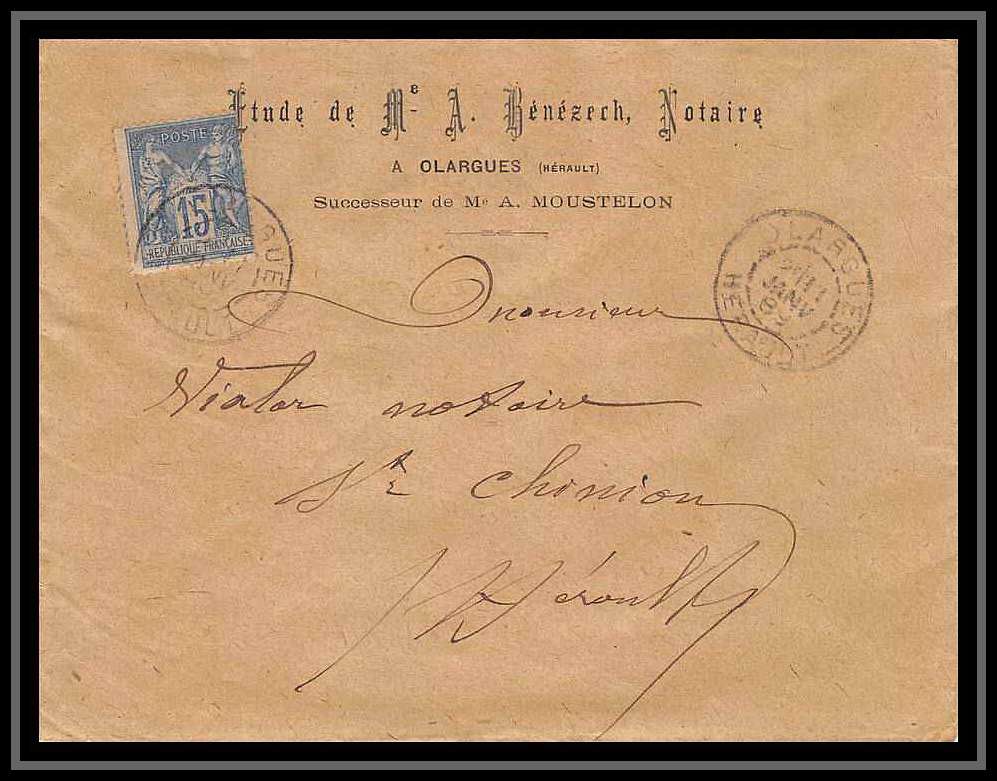 Etude de Me A. Bénézech, Notaire
A OLARGUES (HÉRAULT)
Successeur de Me A. MOUSTELON
POSTE
15
REPUBLIQUE FRANÇAISE
OLARGUES
HERAULT
JANV
Monsieur
Vialar notaire
St Chinian
Hérault